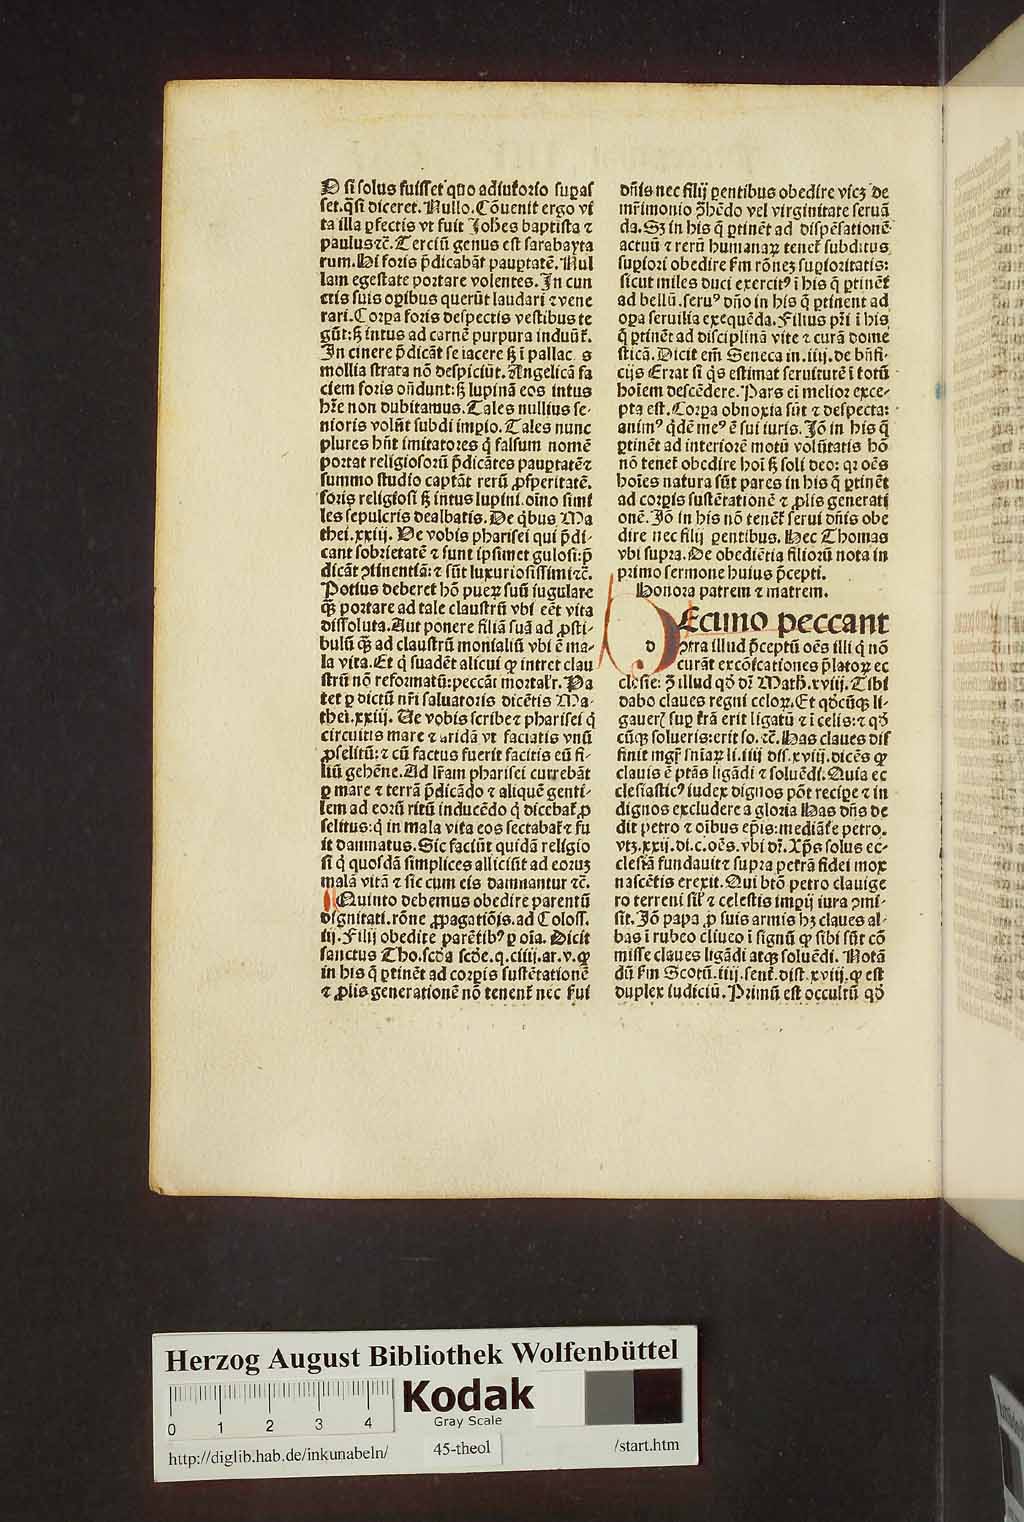 D si solus fuisset quo adiutorio supas
set. q̃si diceret. Nullo. Cõuenit ergo vi
ta illa ꝑfectis vt fuit Johẽs baptista ⁊
paulus⁊c̃. Terciũ genus est sarabayta
rum. Hi foris p̃dicabãt paupꝫtatẽ. Nul
lam egestate portare volentes. In cun
ctis suis oꝑibus querũt laudari ⁊ vene
rari. Corpa foris despectis vestibus te
gũt: sꝫ intus ad carnẽ purpura induũt̃.
In cinere p̃dicãt se iacere sꝫ ĩ pallac s
mollia strata nõ despiciũt. Angelicã fa
ciem foris oñdunt: sꝫ lupinã eos intus
hr̃e non dubitamus. Tales nullius se-
nioris volũt subdi imꝑio. Tales nunc
plures hñt imitatores q̃ falsum nomẽ
portãt religiosorũ p̃dicãtes pauꝑtatẽ⁊
summo studio captãt rerũ ꝓsperitatẽ.
foris religiosi sꝫ intus lupini. oĩno simi
les sepulcris dealbatis. De q̃bus Ma
thei. xxiij. Ve vobis pharisei qui p̃di-
cant sobrietatẽ ⁊ sunt ipsimet gulosi: p̃
dicãt ꝯtinentiã: ⁊ sũt luxuriosissimi⁊c̃.
Potius deberet hõ pueꝝ suũ iugulare
q̃ꝫ portare ad tale claustrũ vbi eẽt vita
dissoluta. Aut ponere filiã suã ad ꝓsti-
bulũ q̃ꝫ ad claustrũ monialiũ vbi ẽ ma-
la vita. Et q̃ suadẽt alicui ꝙ intret clau
strũ nõ reformatũ: peccãt mortalr̃. Pa
tet ꝑ dictũ nr̃i saluatoris dicẽtis Ma-
thei. xxiij. Ve vobis scribe⁊ pharisei q̃
circuitis mare ⁊ aridã vt faciatis vnũ
ꝓselitũ: ⁊ cũ factus fuerit facitis eũ fi-
liũ gehẽne. Ad lr̃am pharisei currebãt
ꝑ mare ⁊ terrã p̃dicãdo ⁊ aliquẽ genti-
lem ad eorũ ritũ inducẽdo q̃ dicebat̃ ꝓ
selitus: q̃ in mala vita eos sectabat̃⁊ fu
it damnatus. Sic faciũt quidã religio
si q̃ quosdã simplices alliciũt ad eoruꝫ
malã vitã ⁊ sic cum eis damnantur ⁊c̃.
Quinto debemus obedire parentũ
dignitati. rõne ꝓpagatiõis. ad Coloss.
iij. Filij obedite parẽtibꝰ ꝑ oĩa. Dicit
sanctus Tho. scd̃a scd̃e. q. ciiij. ar. v. ꝙ
in his q̃ ꝑtinẽt ad corꝑis sustẽtationẽ
⁊ ꝓlis generationẽ nõ tenent̃ nec fui
dñis nec filij ꝑentibus obedire vicꝫ de
mr̃imonio ꝯ̃hẽdo vel virginitate seruã
da. Sꝫ in his q̃ ꝑtinẽt ad dispẽsationẽ
actuũ ⁊ rerũ humanaꝝ tenet̃ subditus
suꝑiori obedire ẜm rõneꝫ suꝑioritatis:
sicut miles duci exercitꝰ ĩ his q̃ ꝑtinẽt
ad bellũ. seruꝰ dño in his q̃ ꝑtinent ad
oꝑa seruilia exequẽda. Filius pr̃i ĩ his
q̃ ꝑtinẽt ad disciplinã vite ⁊ curã dome
sticã. Dicit em̃ Seneca in. iiij. de bñfi-
cijs Errat si q̃s estimat seruitutẽ ĩ totũ
hoĩem descẽdere. Pars ei melior exce-
pta est. Corꝑa obnoxia sũt ⁊ despecta:
animꝰ q̃dẽ meꝰ ẽ sui iuris. Jõ in his q̃
ꝑtinẽt ad interiorẽ motũ volũtatis hõ
nõ tenet̃ obedire hoĩ sꝫ soli deo: qꝛ oẽs
hoĩes natura sũt pares in his q̃ ꝑtinẽt
ad corꝑis sustẽtationẽ ⁊ ꝓlis generati
onẽ. Jõ in his nõ tenẽt̃ serui dñis obe
dire nec filij ꝑentibus. Hec Thomas
vbi supra. De obediẽtia filiorũ nota in
primo sermone huius p̃cepti.
Honora patrem ⁊ matrem.
Ecimo peccant
d ꝯtra illud p̃ceptũ oẽs illi q̃ nõ
curãt excõicationes p̃latoꝝ ec
clesie: ꝯ̃ illud qð dr̃ Math̃. xviij. Tibi
dabo claues regni celoꝝ. Et qðcũqꝫ li-
gaueꝛ̃ suꝑ tr̃ã erit ligatũ ⁊ ĩ celis: ⁊ qð
cũqꝫ solueris: erit so. ⁊c̃. Has claues dif
finit mgr̃ snĩaꝝ li. iiij dis. xviij. dicẽs ꝙ
clauis ẽ ptãs ligãdi ⁊ soluẽdi. Quia ec
clesiasticꝰ iudex dignos põt reciꝑe ⁊ in
dignos excludere a gloria Has dñs de
dit petro ⁊ oĩbus ep̃is: mediãte petro.
vtꝫ. xxij. di. c. oẽs. vbi dr̃. Xp̃s solus ec-
clesiã fundauit⁊ supra petrã fidei mox
nascẽtis erexit. Qui btõ petro clauige
ro terreni sil̃ ⁊ celestis imꝑij iura ꝯmi-
sit. Jõ papa ꝓ suis armis hꝫ claues al-
bas ĩ rubeo cliueo ĩ signũ ꝙ sibi sũt cõ
misse claues ligãdi atqꝫ soluẽdi. Notã
dũ ẜm Scotũ. iiij. sent̃. dist. xviij. ꝙ est
duplex iudiciũ. Primũ est occultũ qð
Herzog August Bibliothek Wolfenbüttel
0 1 2 3 4
Kodak
Gray Scale
http://diglib.hab.de/inkunabeln/ 45-theol /start.htm